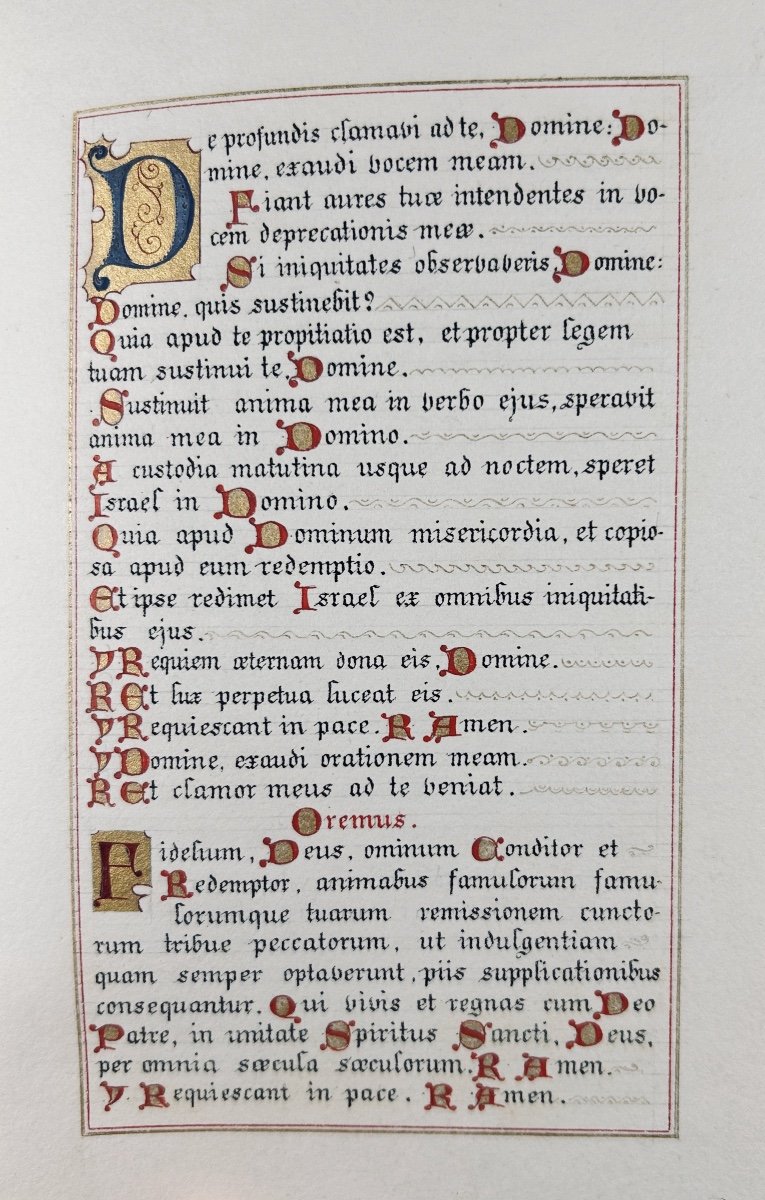 De profundis clamavi ad te, Domine: Do-
mine, exaudi vocem meam.
Fiant aures tuæ intendentes in vo-
cem deprecationis meæ.
Si iniquitates observaveris, Domine:
Domine, quis sustinebit?
Quia apud te propitiatio est, et propter legem
tuam sustinui te, Domine.
Sustinuit anima mea in verbo ejus, speravit
anima mea in Domino.
A custodia matutina usque ad noctem, speret
Israel in Domino.
Quia apud Dominum misericordia, et copio-
sa apud eum redemptio.
Et ipse redimet Israel ex omnibus iniquitati-
bus ejus.
℣ Requiem æternam dona eis, Domine.
R Et lux perpetua luceat eis.
℣ Requiescant in pace. R Amen.
℣ Domine, exaudi orationem meam.
R Et clamor meus ad te veniat.
Oremus.
Fidelium, Deus, ominum Conditor et
Redemptor, animabus famulorum famu-
lorumque tuarum remissionem cuncto-
rum tribue peccatorum, ut indulgentiam
quam semper optaverunt, piis supplicationibus
consequantur. Qui vivis et regnas cum Deo
Patre, in unitate Spiritus Sancti, Deus,
per omnia sæcula sæculorum. R Amen.
℣. Requiescant in pace. R Amen.